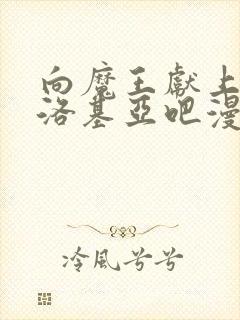 向魔王獻上
洛基亞吧漫
冷風兮兮